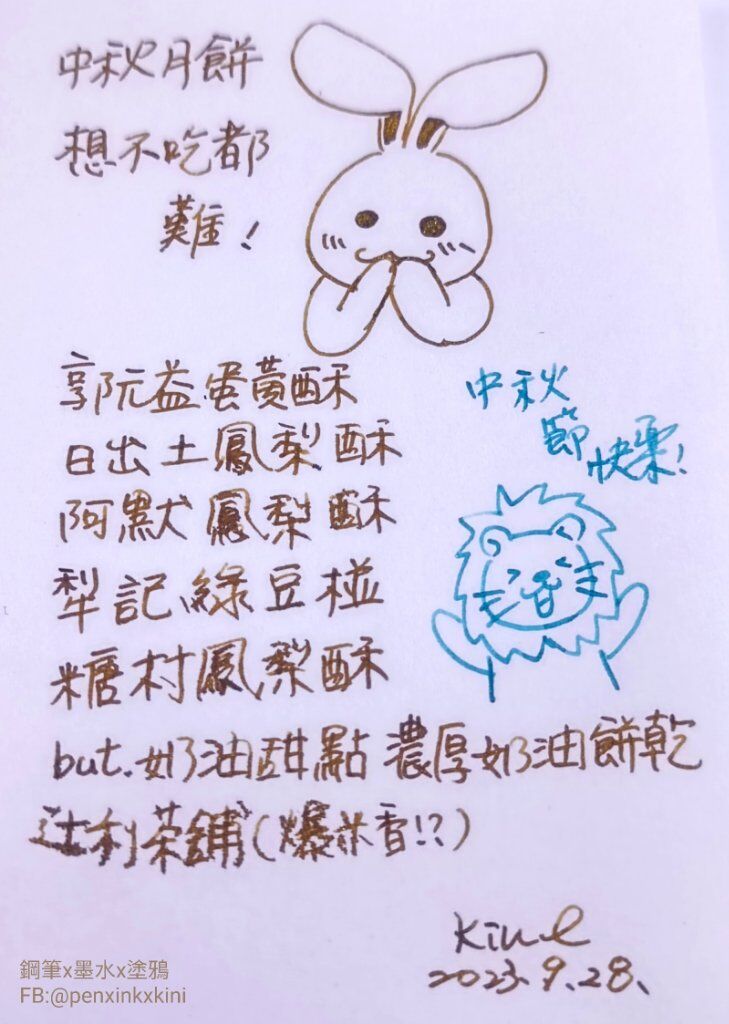 中秋月餅
想不吃都
難!
郭阮益蛋黃酥
日出土鳳梨酥
阿默鳳梨酥
犁記綠豆椪
糖村鳳梨酥
中秋
節
快樂!
but.奶油甜點 濃厚奶油餅乾
辻利茶鋪(爆米香!?)
2023.9.28.
鋼筆x墨水x塗鴉
FB:@penxinkxkini